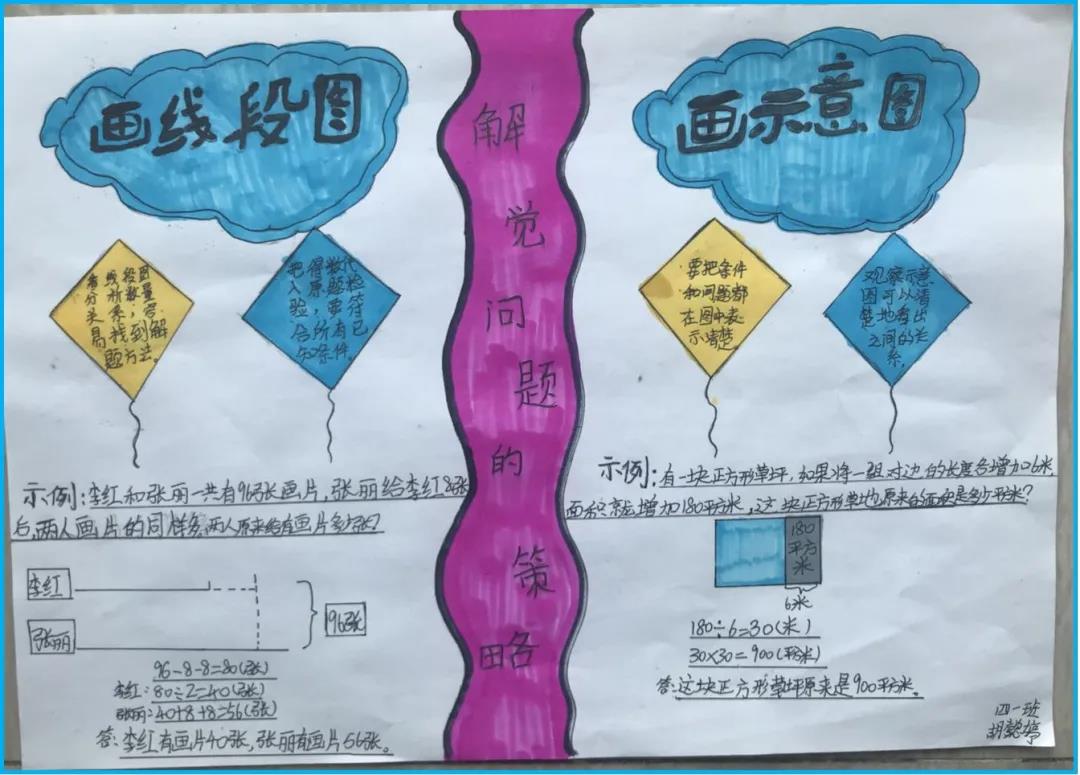 画线段图
看线段图
分析数量
关系，容
易找到解
题方法。
把得数代
入原题检
验，要符
合所有已
知条件。
示例：李红和张丽一共有96张画片，张丽给李红8张
后，两人画片的同样多，两人原来各有画片多少张？
李红
张丽
96张
96-8-8=80(张)
李红：80÷2=40(张)
张丽：40+8+8=56(张)
答：李红有画片40张，张丽有画片56张。
解觉问题的策略
画示意图
要把条件
和问题都
在图中表
示清楚
观察示意
图可以清
楚地看出
之间的关
系。
示例：有一块正方形草坪，如果将一组对边的长度各增加6米，
面积就增加180平方米，这块正方形草地原来的面积是多少平方米？
180
平方
米
6米
180÷6=30(米)
30×30=900(平方米)
答：这块正方形草坪原来是900平方米。
四一班
胡懿婷